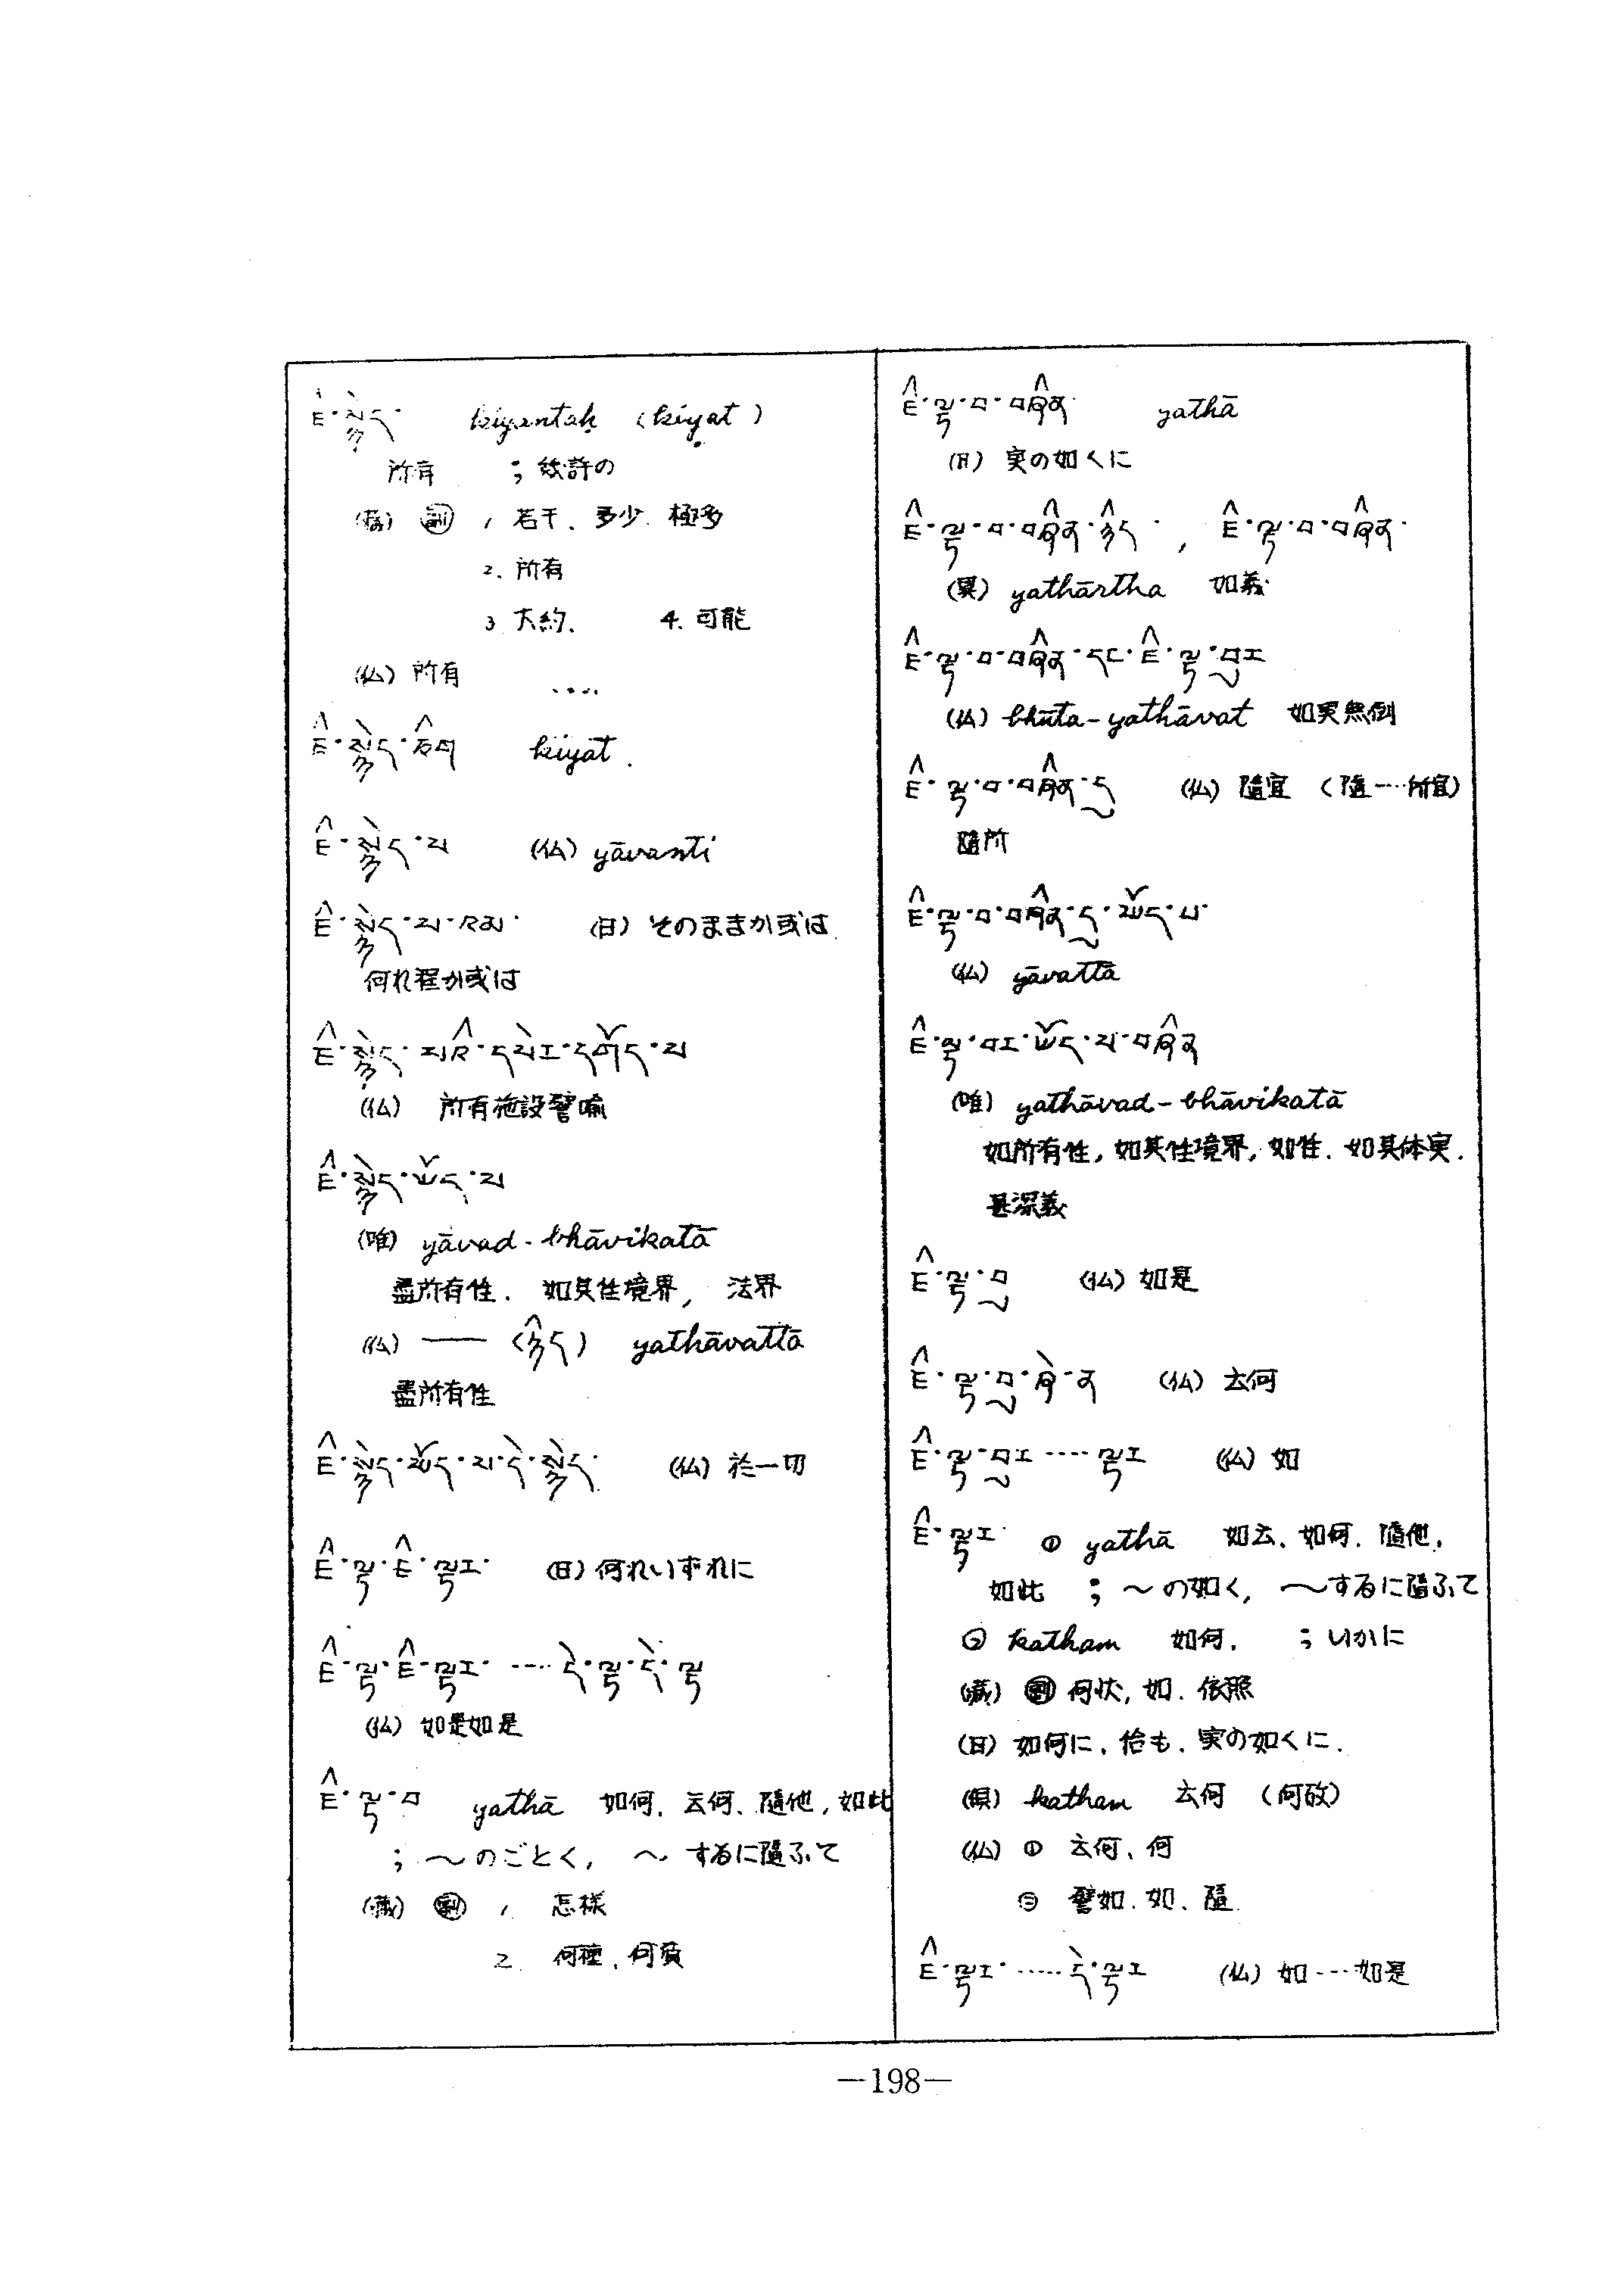 ཇི་སྙེད་ kiyantaḥ (kiyat)
所有 ; 幾許の
(蔵) 副 1 若干、多少、極多
2. 所有
3 大約、 4. 可能
(仏) 所有 ....
ཇི་སྙེད་ཅིག kiyat.
ཇི་སྙེད་པ (仏) yāvanti
ཇི་སྙེད་པ་འམ་ (日) そのままか或は
何れ程か或は
ཇི་སྙེད་པའི་དཔེར་དགོད་པ
(仏) 所有施設譬喩
ཇི་སྙེད་ཡོད་པ
(唯) yāvad-bhāvikatā
盡所有性. 如其性境界, 法界
(仏) ── (ཉིད) yathāvattā
盡所有性
ཇི་སྙེད་ཡོད་པ་དེ་སྙེད་ (仏) 於一切
ཇི་ལྟ་ཇི་ལྟར་ (日) 何れいずれに
ཇི་ལྟ་ཇི་ལྟར་ .... དེ་ལྟ་དེ་ལྟ
(仏) 如是如是
ཇི་ལྟ་བ yathā 如何、云何、隨他, 如此
; 〜のごとく, 〜するに隨ふて
(蔵) 副 1 怎様
2. 何種、何
ཇི་ལྟ་བ་བཞིན་ yathā
(日) 実の如くに
ཇི་ལྟ་བ་བཞིན་ཉིད་ , ཇི་ལྟ་བ་བཞིན་
(異) yathārtha 如義
ཇི་ལྟ་བ་བཞིན་དང་ཇི་ལྟ་བུར
(仏) bhūta-yathāvat 如実無倒
ཇི་ལྟ་བ་བཞིན་དུ (仏) 隨宜 (隨…所宜)
隨所
ཇི་ལྟ་བ་བཞིན་དུ་ཡོད་པ་
(仏) yāvattā
ཇི་ལྟ་བར་ཡོད་པ་བཞིན
(唯) yathāvad-bhāvikatā
如所有性, 如其性境界, 如性. 如其体実.
甚深義
ཇི་ལྟ་བུ (仏) 如是
ཇི་ལྟ་བུ་ཞེ་ན (仏) 云何
ཇི་ལྟ་བུར .... ལྟར (仏) 如
ཇི་ལྟར་ ① yathā 如云、如何、隨他,
如此 ; 〜の如く, 〜するに隨ふて
② katham 如何. ; いかに
(蔵) 副 何状, 如. 依照
(日) 如何に、恰も、実の如くに.
katham 云何 (何故)
(仏) ① 云何、何
② 譬如. 如、隨
ཇི་ལྟར་ ..... དེ་ལྟར (仏) 如…如是
—198—